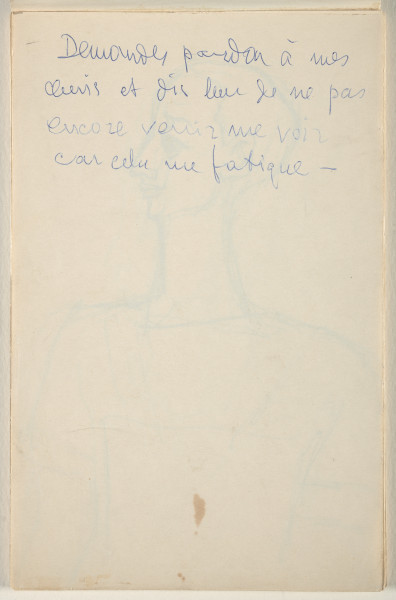 Demandes pardon à mes
amis et dis leur de ne pas
encore venir me voir
car cela me fatigue —